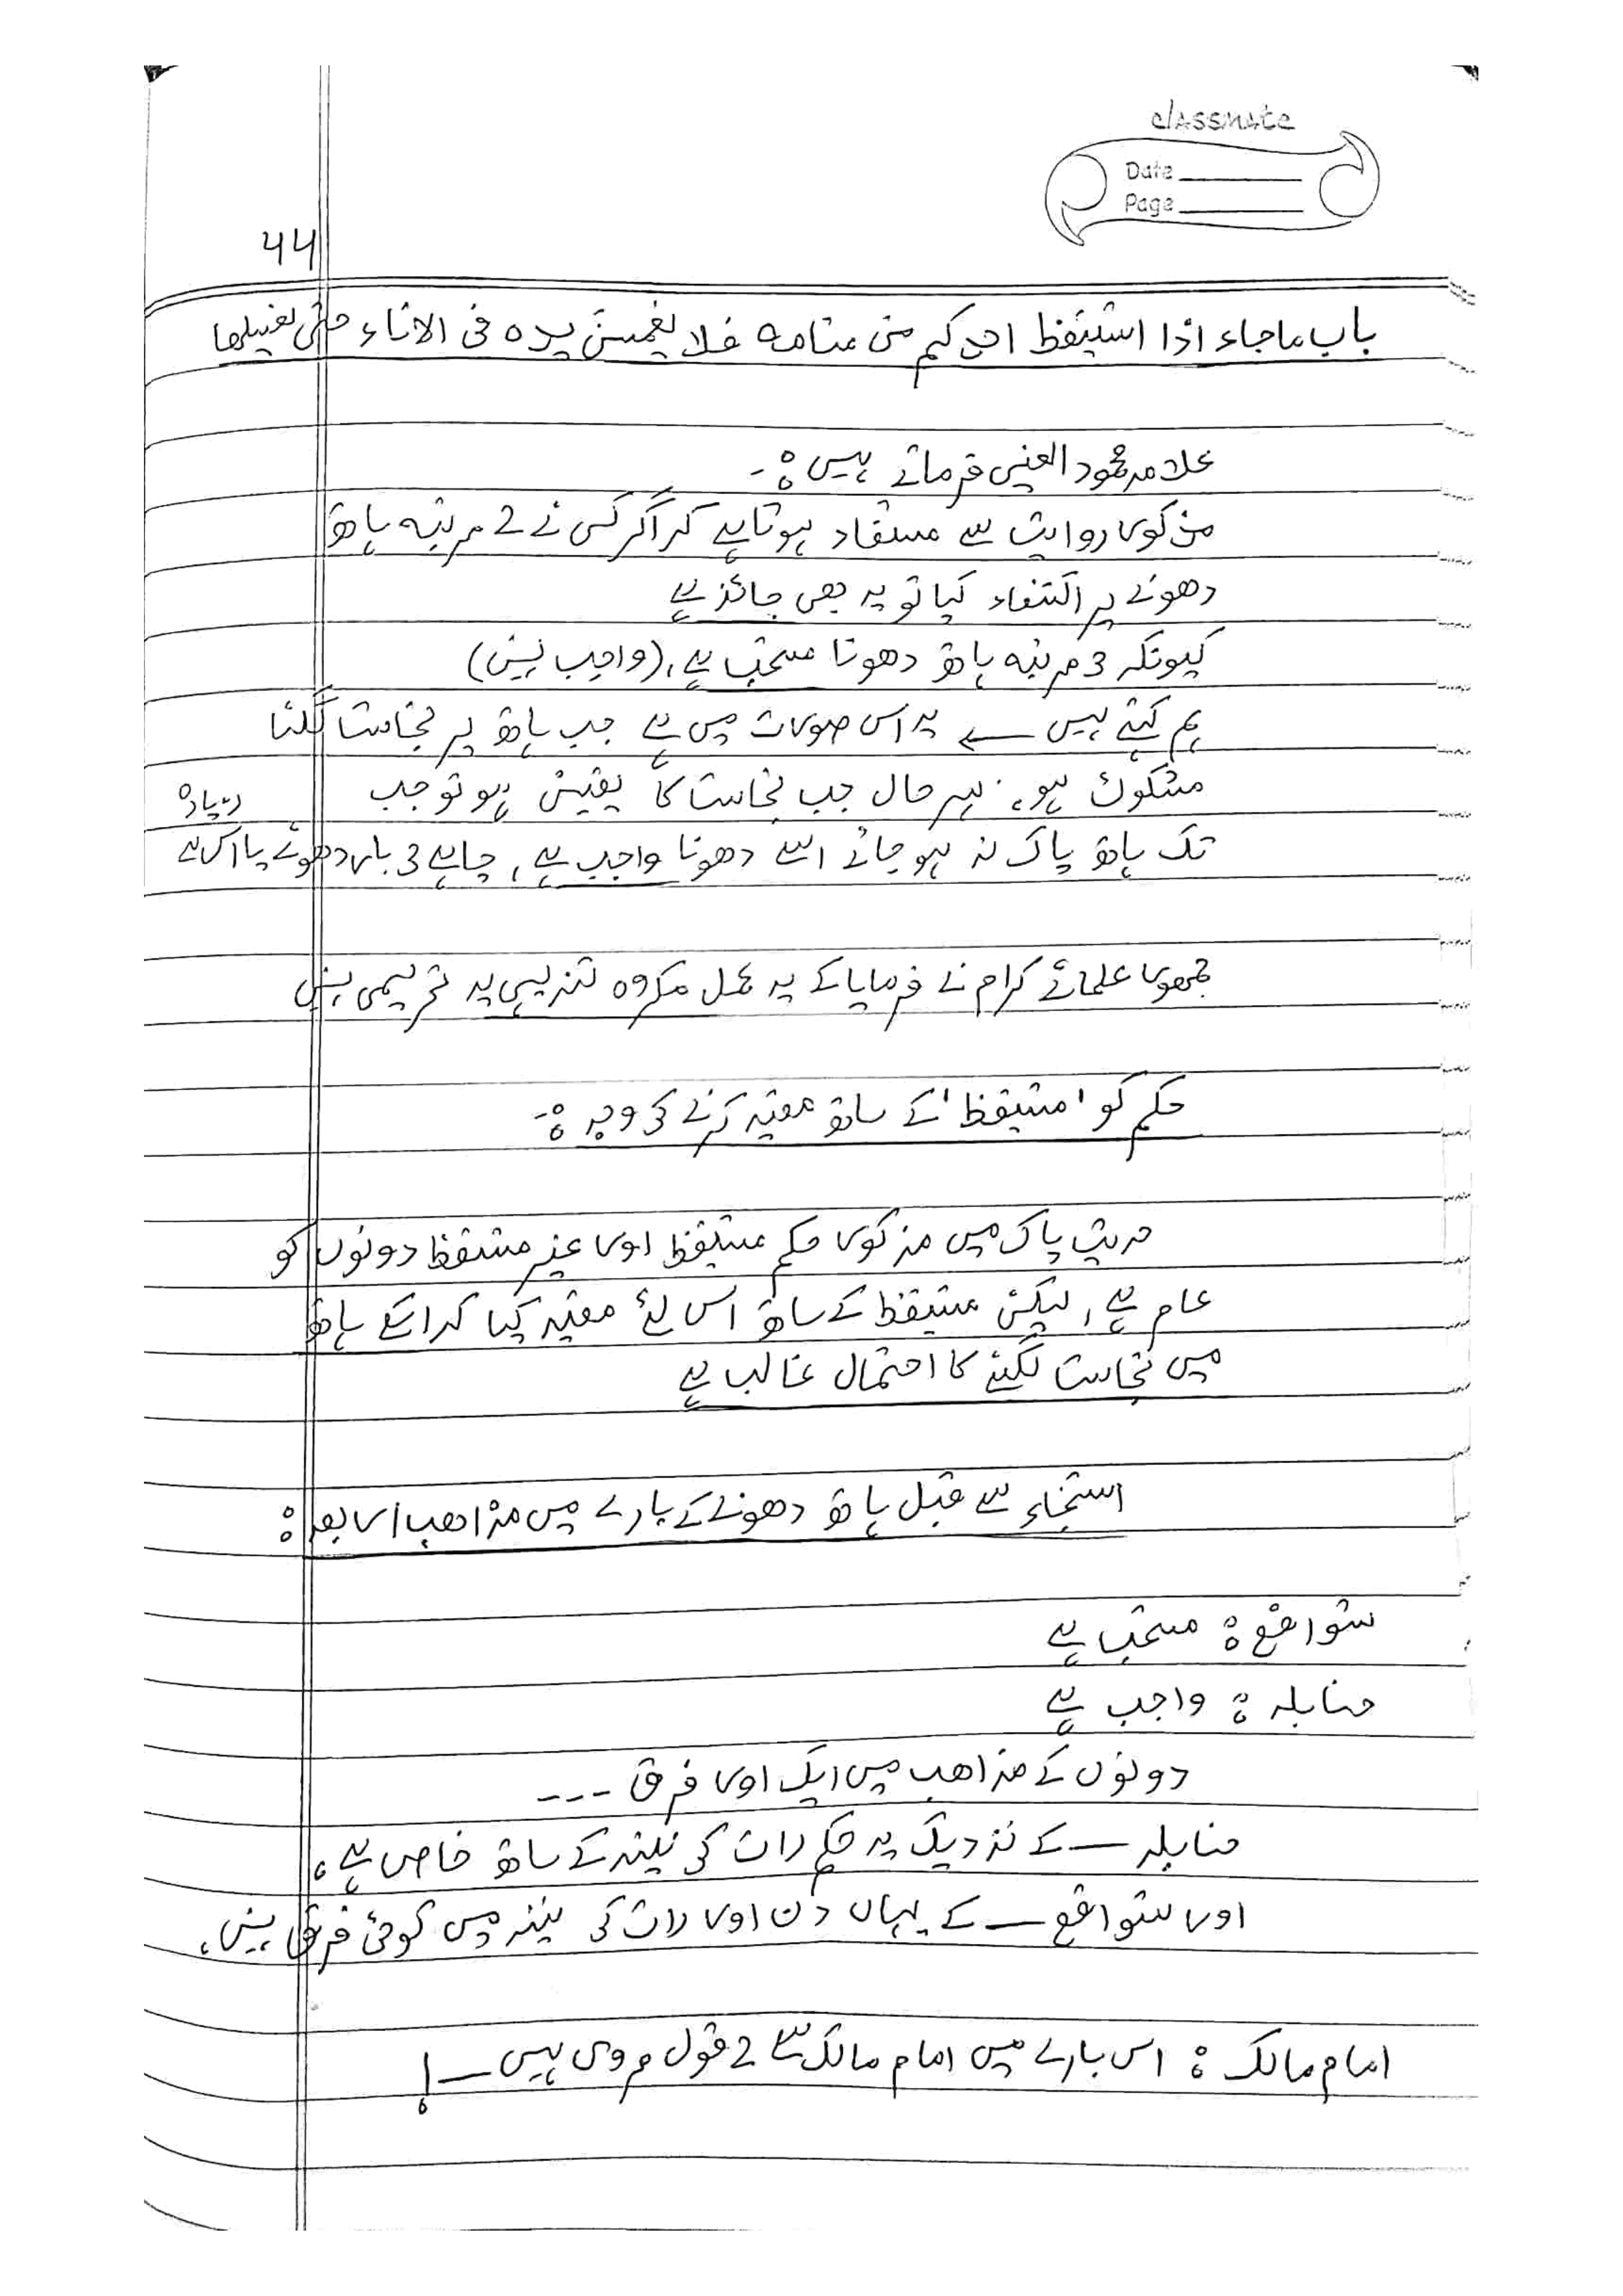 classmate
Date
Page
۶۶
باب ما جاء اذا استیقظ احدکم من منامه فلا یغمسن یده فی الاناء حتی یغسلها
علامہ محمود العینی فرماتے ہیں :-
مذکور روایت سے مستفاد ہوتا ہے کہ اگر کسی نے 2 مرتبہ ہاتھ
دھونے پر اکتفاء کیا تو یہ بھی جائز ہے
کیونکہ 3 مرتبہ ہاتھ دھونا مستحب ہے، (واجب نہیں)
ہم کہتے ہیں ← یہ اس صورت میں ہے جب ہاتھ پر نجاست لگنا
مشکوک ہو، بہر حال جب نجاست کا یقین ہو تو جب
تک ہاتھ پاک نہ ہو جائے اسے دھونا واجب ہے، چاہے 3 بار دھوئے یا اس سے زیادہ
جمہور علمائے کرام نے فرمایا کے یہ عمل مکروہ تنزیہی ہے تحریمی نہیں
حکم کو 'مستیقظ' کے ساتھ مقید کرنے کی وجہ :-
حدیث پاک میں مذکور حکم مستیقظ اور غیر مستیقظ دونوں کو
عام ہے، لیکن مستیقظ کے ساتھ اس لئے مقید کیا کہ اسکے ہاتھ
میں نجاست لگنے کا احتمال غالب ہے
استنجاء سے قبل ہاتھ دھونے کے بارے میں مذاھب اربعہ :
شوافع : مستحب ہے
حنابلہ : واجب ہے
دونوں کے مذاھب میں ایک اور فرق ---
حنابلہ — کے نزدیک یہ حکم رات کی نیند کے ساتھ خاص ہے،
اور شوافع — کے یہاں دن اور رات کی نیند میں کوئی فرق نہیں،
امام مالک : اس بارے میں امام مالک سے 2 قول مروی ہیں —!